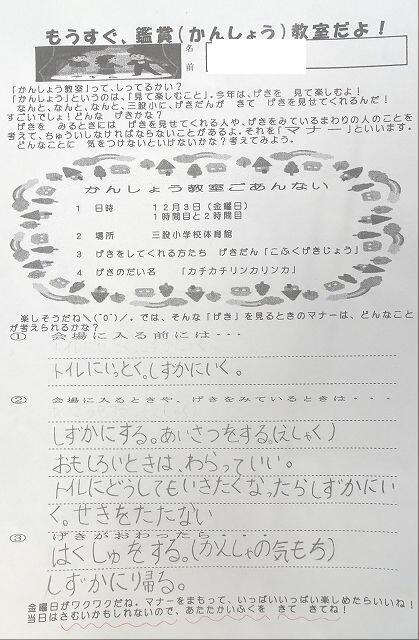 もうすぐ、鑑賞(かんしょう)教室だよ!
名
前
「かんしょう教室」って、しってるかい?
「かんしょう」というのは、「見て楽しむこと」。今年は、げきを 見て楽しむよ!
なんと、なんと、なんと、三股小に、げきだんが きて げきを見せてくれるんだ!
すごいでしょ!どんな げきかな?
げきを みるときには げきを見せてくれる人や、げきをみているまわりの人のことを
考えて、ちゅういしなければならないことがあるよ。それを「マナー」といいます。
どんなことに 気をつけないといけないかな?考えてみよう。
かんしょう教室ごあんない
1 日時 12月3日(金曜日)
1時間目と2時間目
2 場所 三股小学校体育館
3 げきをしてくれる方たち げきだん「こふくげきじょう」
4 げきのだい名 「カチカチリンカリンカ」
楽しそうだね\(^0^)/。では、そんな「げき」を見るときのマナーは、どんなこと
が考えられるかな?
① 会場に入る前には・・・
トイレにいっとく。しずかにいく。
② 会場に入るときや、げきをみているときは・・・
しずかにする。あいさつをする。(えしゃく)
おもしろいときは、わらっていい。
トイレにどうしてもいきたくなったらしずかにい
く。せきをたたない
③ げきがおわったら・・・
はくしゅをする。(かんしゃの気もち)
しずかにり帰る。
金曜日がワクワクだね。マナーをまもって、いっぱいいっぱい楽しめたらいいね!
当日はさむいかもしれないので、あたたかいふくを きて きてね!